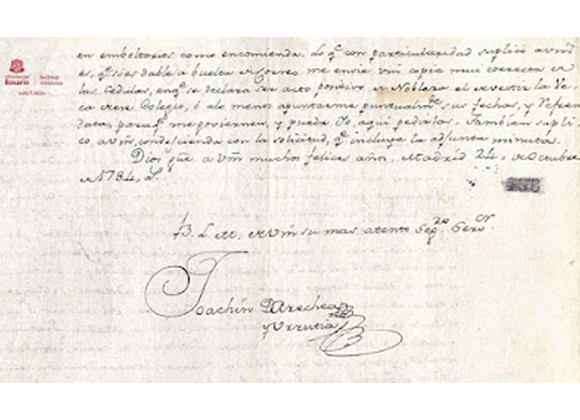 Universidad del
Rosario
Archivo
Histórico
en emboltorios como encomienda. Lo q.e con particularidad suplico a vm
es, q.e si es dable a buelta de Correo me envie una copia mui correcta de
las Cedulas, en q.e se declara ser acto positivo de Nobleza el vestir la Ve
ca de ese Colegio, ó alo menos apuntarme puntualm.te sus fechas, y
data, para q.e me goviernen, y pueda Yo, aqui pedirlas. Tambien supli
co a vm, condescienda con la solicitud, q.e incluye la adjunta minuta.
Dios gue a vm muchos felices años, Madrid 24, de Octubre
de 1784,
B. L. M. de Vm su mas atento Seg.ro Serv.or
Joachin de Arechea
y Urrutia